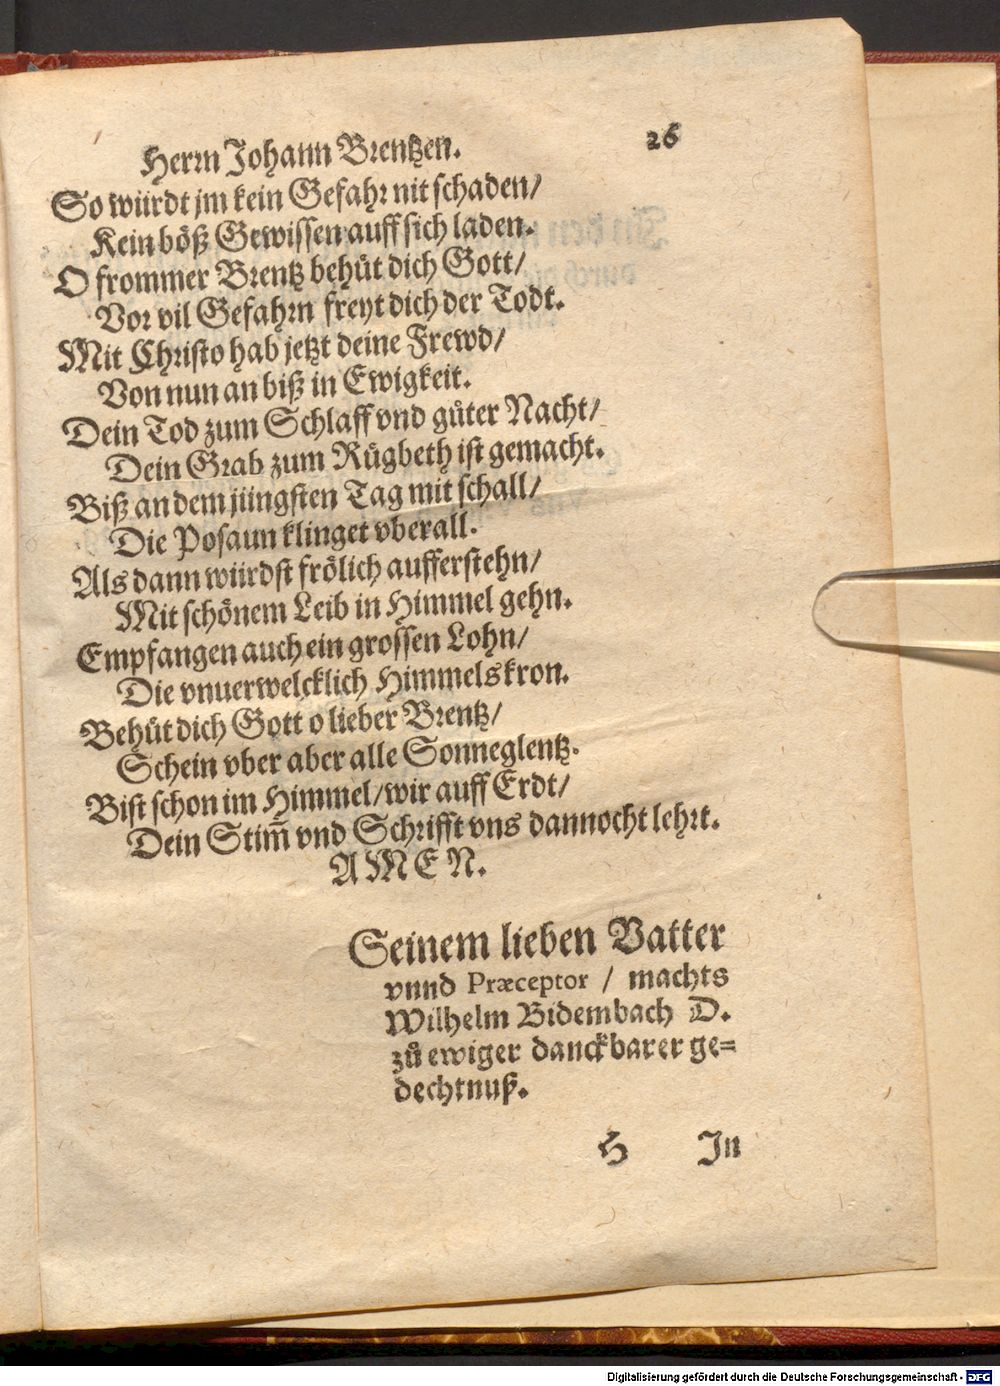 Herrn Johann Brentzen. 26
So würdt jm kein Gefahr nit schaden/
Kein böß Gewissen auff sich laden.
O frommer Brentz behüt dich Gott/
Vor vil Gefahrn freyt dich der Todt.
Mit Christo hab jetzt deine Frewd/
Von nun an biß in Ewigkeit.
Dein Tod zum Schlaff vnd güter Nacht/
Dein Grab zum Rügbeth ist gemacht.
Biß an dem jüngsten Tag mit schall/
Die Posaun klinget vberall.
Als dann würdst frölich aufferstehn/
Mit schönem Leib in Himmel gehn.
Empfangen auch ein grossen Lohn/
Die vnuerwelcklich Himmelskron.
Behüt dich Gott o lieber Brentz/
Schein vber aber alle Sonneglentz.
Bist schon im Himmel/wir auff Erdt/
Dein Stim̃ vnd Schrifft vns dannocht lehrt.
AMEN.
Seinem lieben Vatter
vnnd Præceptor / machts
Wilhelm Bidembach D.
zů ewiger danckbarer ge=
dechtnuß.
H In
Digitalisierung gefördert durch die Deutsche Forschungsgemeinschaft - DFG